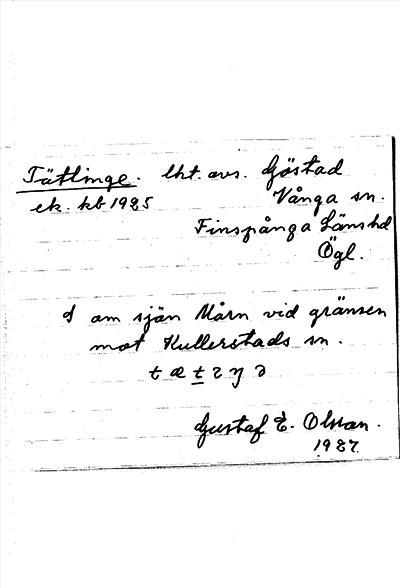 Tätlinge. lht. avs. Göstad
ek. kb 1985 Vånga sn.
Finspånga Länshd
Ögl.
S om sjön Mårn vid gränsen
mot Kullerstads sn.
Gustaf E. Olsson.
1987.